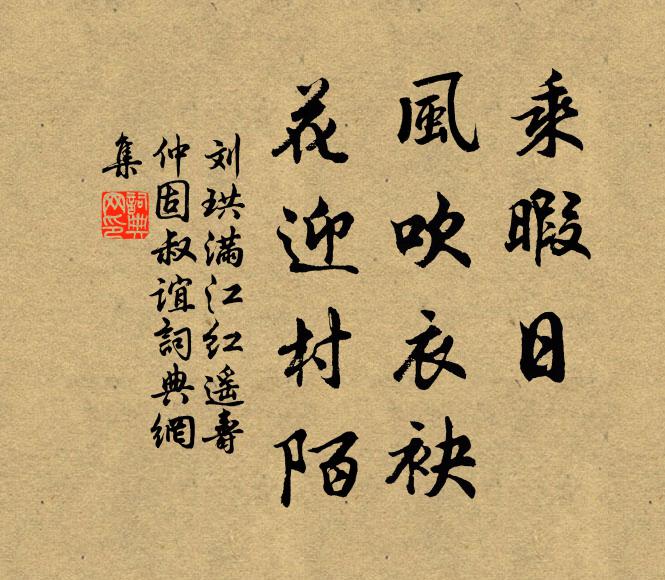 乘暇日
風吹衣袂
花迎村陌
刘珙满江红遥壽
仲固叔誼詞典網
集
詞典網印